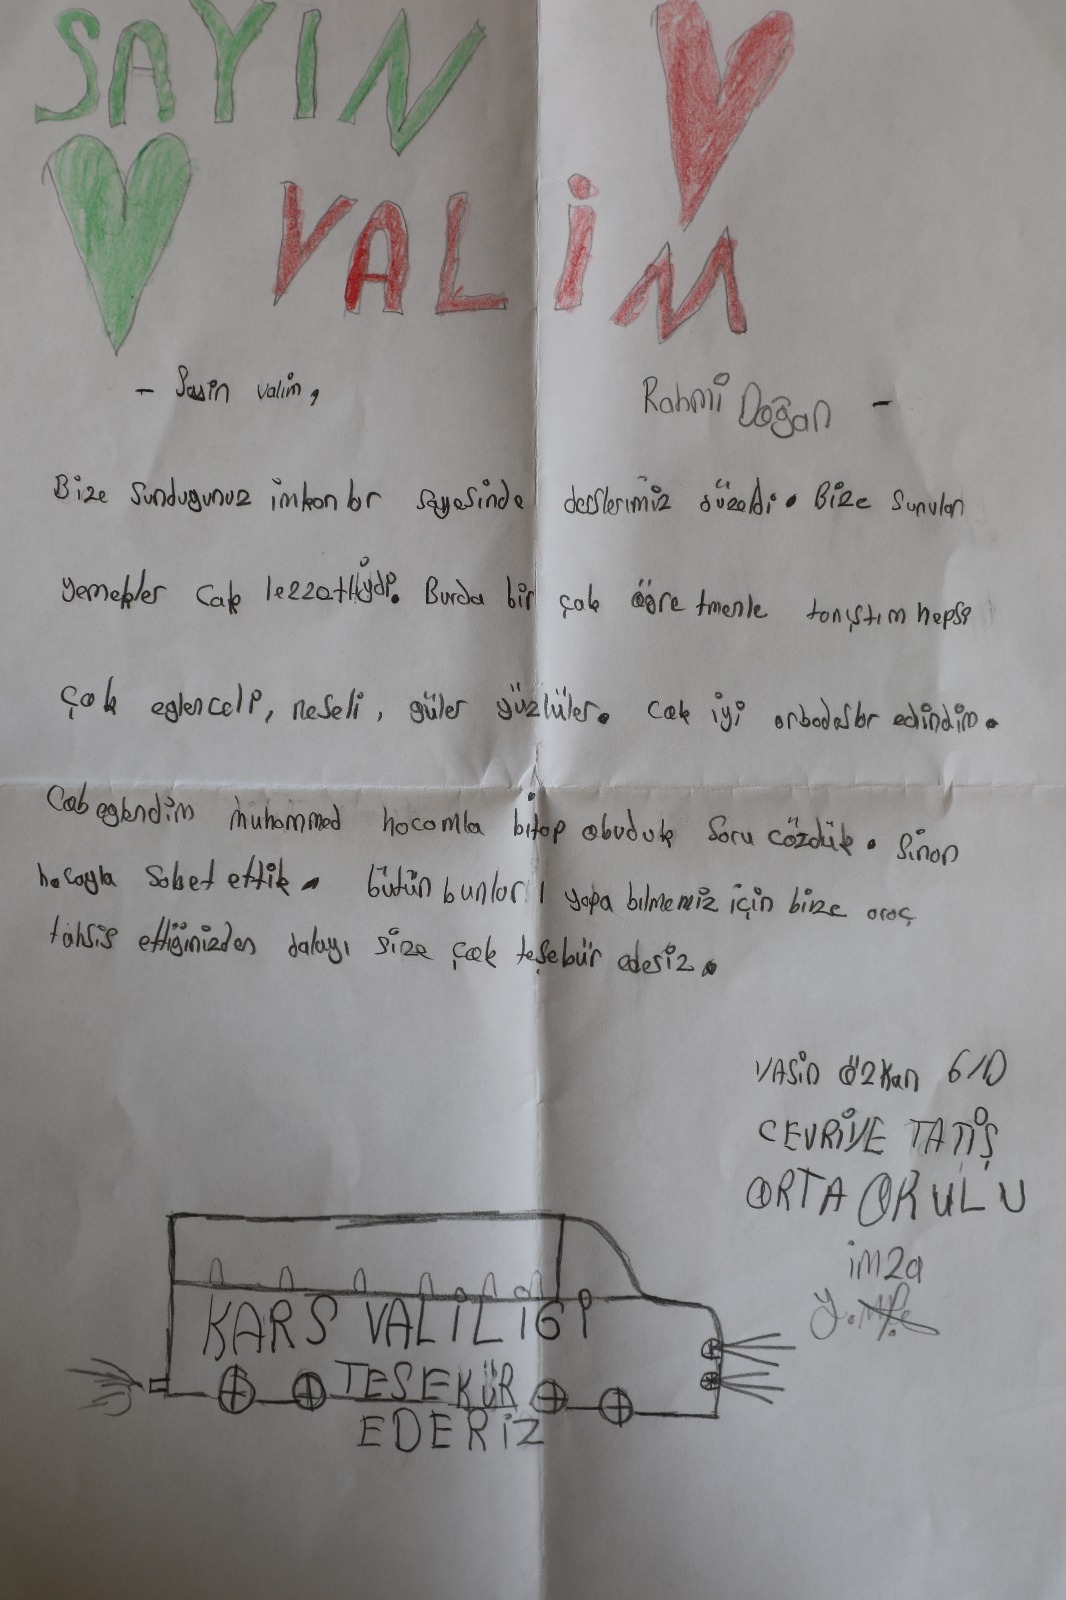 SAYIN
VALİM
- Sayin valim, Rahmi Doğan -
Bize sundugunuz imkanlar sayesinde derslerimiz düzeldi. Bize sunulan
yemekler cok lezzatliydi. Burda bir çok öğretmenle tanıştım hepsi
çok eglenceli, neseli, güler yüzlüler. cok iyi arkadaslar edindim.
Cok eglendim muhammed hocamla kitap okuduk soru cözdük. Sinan
hocayla sobet ettik. bütün bunları yapa bilmemiz için bize araç
tahsis ettiğinizden dolayı size çok teşekür ederiz.
YASiN ÖzKan 6/D
CEVRİYE TATİŞ
ORTA OKULU
imza
KARS VALİLİGİ
TESEKÜR
EDERiZ